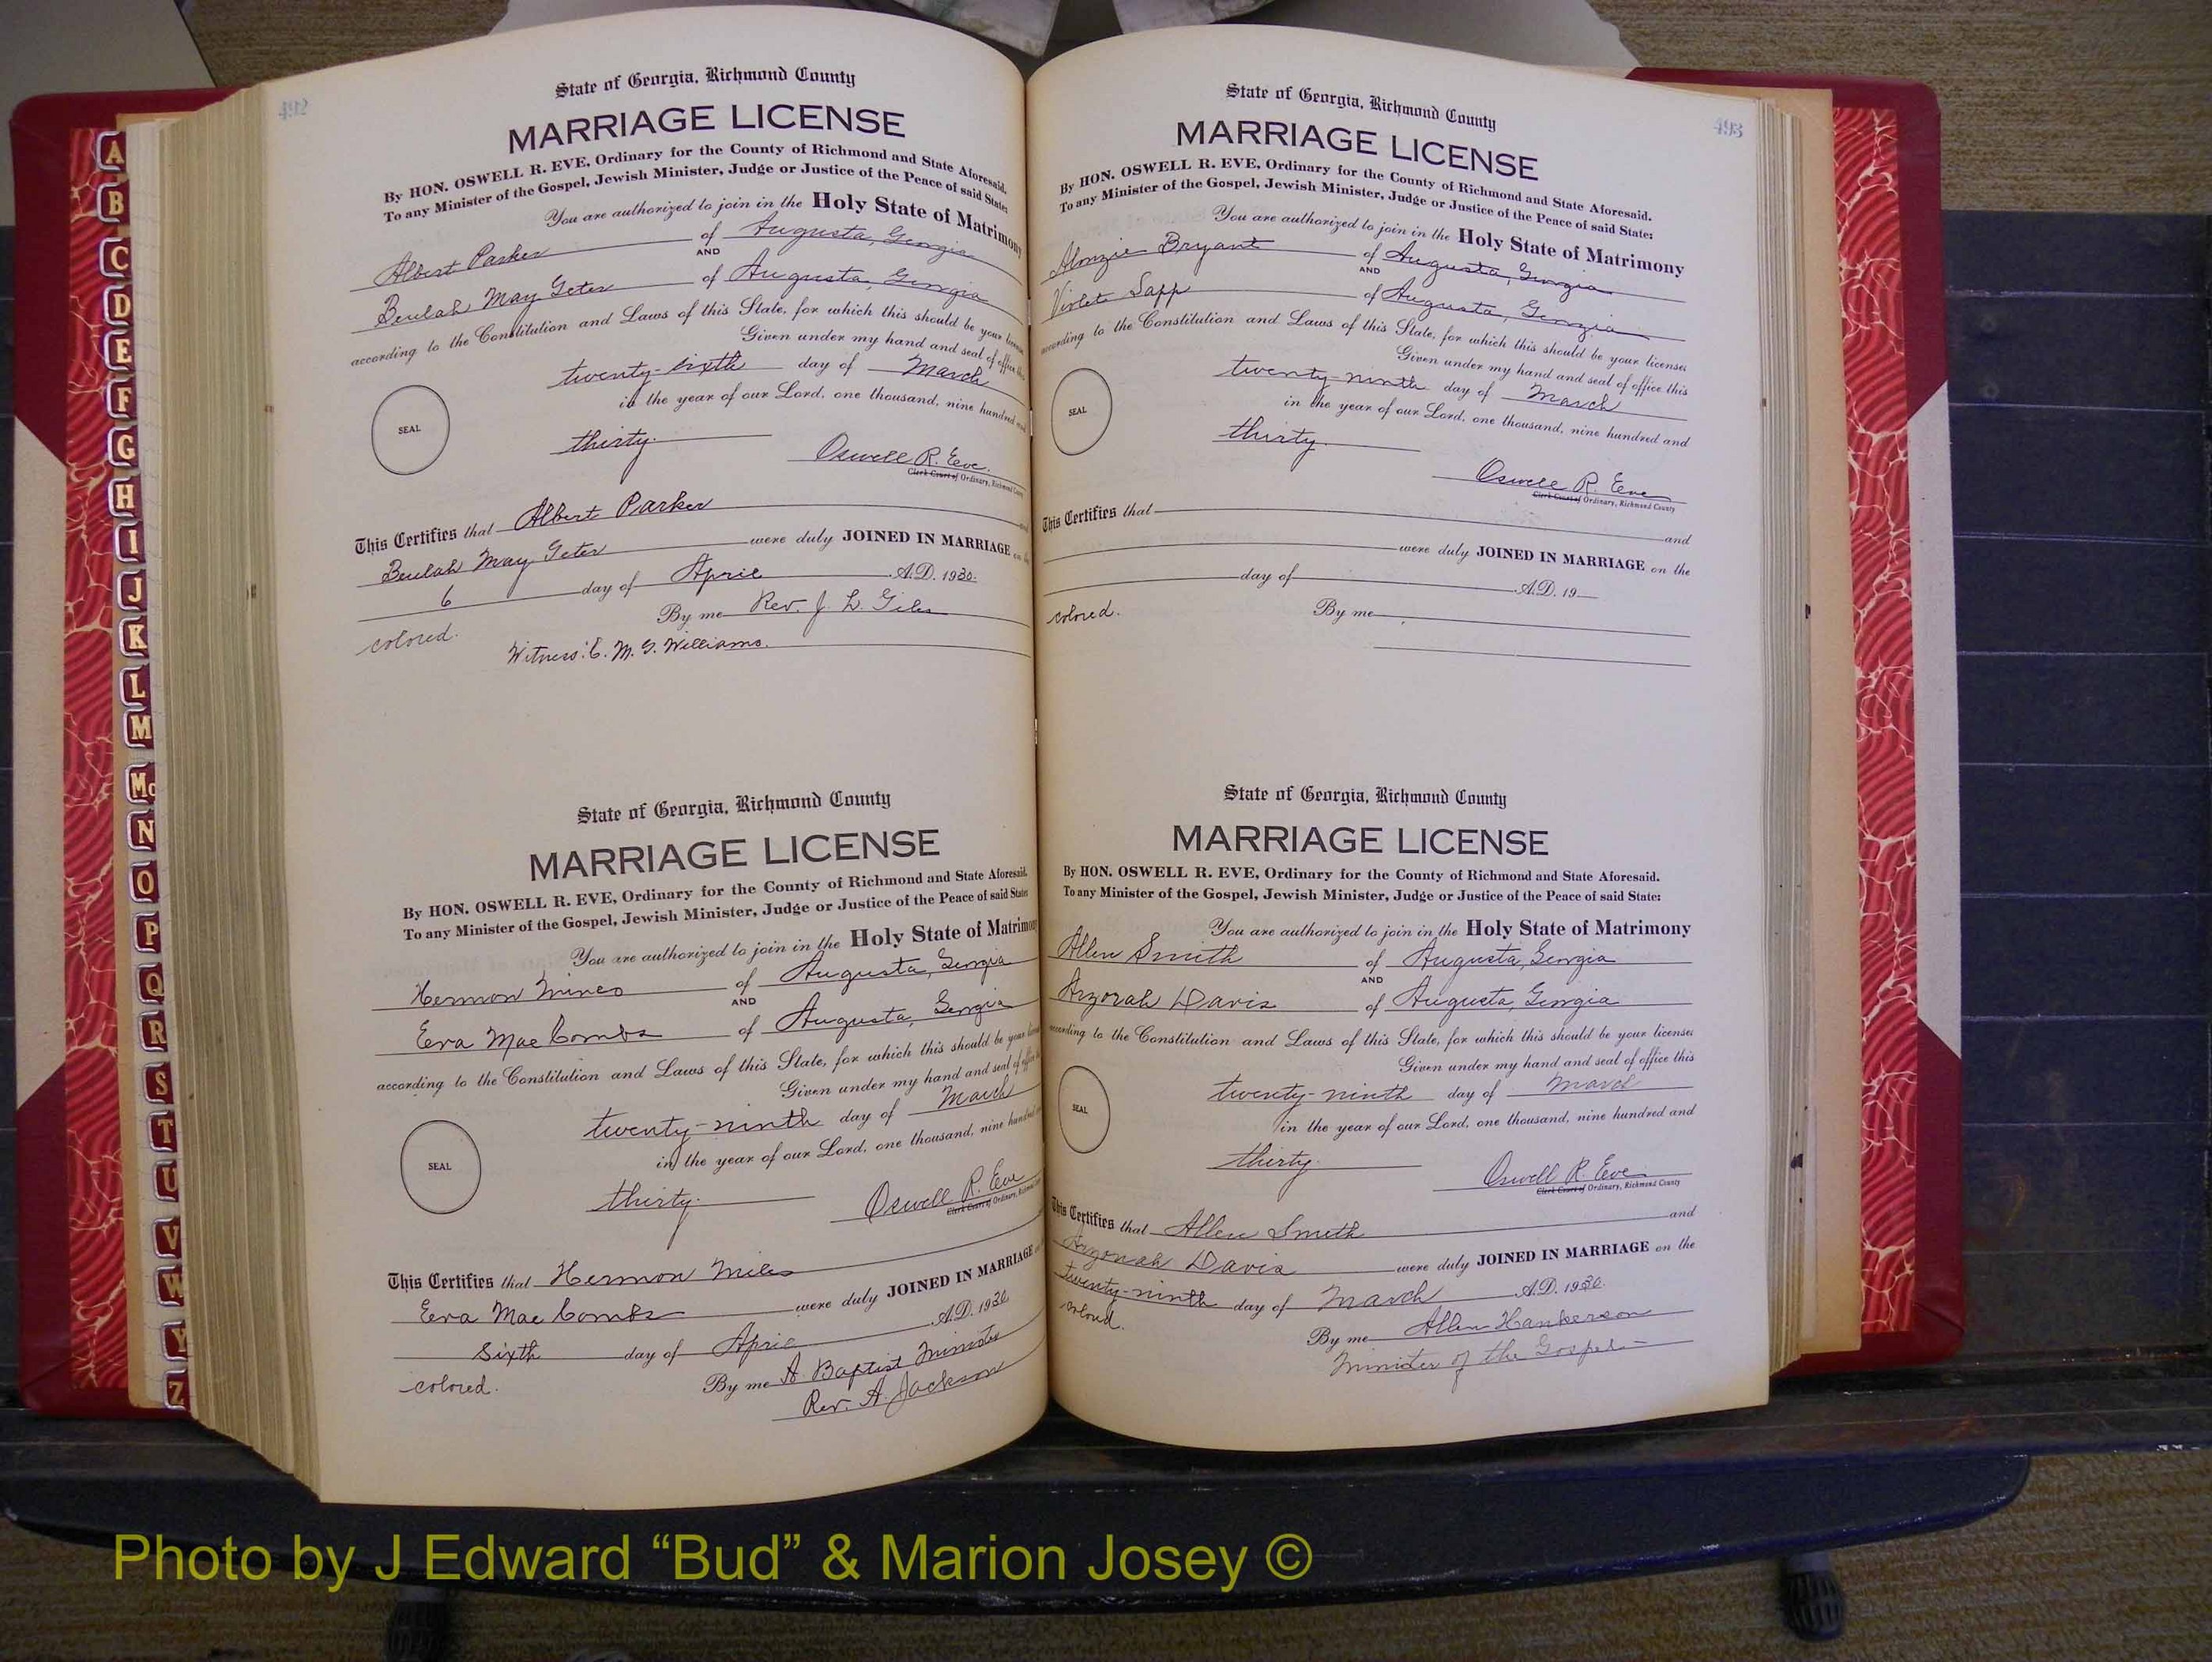 492
State of Georgia, Richmond County
MARRIAGE LICENSE
By HON. OSWELL R. EVE, Ordinary for the County of Richmond and State Aforesaid.
To any Minister of the Gospel, Jewish Minister, Judge or Justice of the Peace of said State:
You are authorized to join in the Holy State of Matrimony
Albert Parker of Augusta, Georgia
AND
Beulah May Geter of Augusta, Georgia
according to the Constitution and Laws of this State, for which this should be your license
Given under my hand and seal of office this
twenty-sixth day of March
in the year of our Lord, one thousand, nine hundred and
SEAL
thirty.
Oswell R. Eve.
Clerk Court of Ordinary, Richmond County
This Certifies that Albert Parker and
Beulah May Geter were duly JOINED IN MARRIAGE on the
6 day of April A.D. 1930.
By me Rev. J. L. Giles
colored.
Witness: C. M. G. Williams.
State of Georgia, Richmond County
MARRIAGE LICENSE
By HON. OSWELL R. EVE, Ordinary for the County of Richmond and State Aforesaid.
To any Minister of the Gospel, Jewish Minister, Judge or Justice of the Peace of said State:
You are authorized to join in the Holy State of Matrimony
Hermon Mines of Augusta, Georgia
AND
Eva Mae Combs of Augusta, Georgia
according to the Constitution and Laws of this State, for which this should be your license
Given under my hand and seal of office this
twenty-ninth day of March
in the year of our Lord, one thousand, nine hundred and
SEAL
thirty.
Oswell R. Eve
Clerk Court of Ordinary, Richmond County
This Certifies that Hermon Miles
Eva Mae Combs were duly JOINED IN MARRIAGE on
Sixth day of April A.D. 1930
colored.
By me A Baptist Minister
Rev. A. Jackson
493
State of Georgia, Richmond County
MARRIAGE LICENSE
By HON. OSWELL R. EVE, Ordinary for the County of Richmond and State Aforesaid.
To any Minister of the Gospel, Jewish Minister, Judge or Justice of the Peace of said State:
You are authorized to join in the Holy State of Matrimony
Alonzie Bryant of Augusta, Georgia
AND
Violet Sapp of Augusta, Georgia
according to the Constitution and Laws of this State, for which this should be your license
Given under my hand and seal of office this
twenty-ninth day of March
in the year of our Lord, one thousand, nine hundred and
SEAL
thirty.
Oswell R. Eve
Clerk Court of Ordinary, Richmond County
This Certifies that
and
were duly JOINED IN MARRIAGE on the
day of A.D. 19
colored.
By me
State of Georgia, Richmond County
MARRIAGE LICENSE
By HON. OSWELL R. EVE, Ordinary for the County of Richmond and State Aforesaid.
To any Minister of the Gospel, Jewish Minister, Judge or Justice of the Peace of said State:
You are authorized to join in the Holy State of Matrimony
Allen Smith of Augusta, Georgia
AND
Arzorah Davis of Augusta, Georgia
according to the Constitution and Laws of this State, for which this should be your license
Given under my hand and seal of office this
twenty-ninth day of March
in the year of our Lord, one thousand, nine hundred and
SEAL
thirty.
Oswell R. Eve
Clerk Court of Ordinary, Richmond County
This Certifies that Allen Smith and
Arzorah Davis were duly JOINED IN MARRIAGE on the
twenty-ninth day of March A.D. 1930.
colored.
By me Allen Hankerson
Minister of the Gospel
A
B
C
D
E
F
G
H
I
J
K
L
M
Mc
N
O
P
Q
R
S
T
U
V
W
Y
Z
Photo by J Edward “Bud” & Marion Josey ©